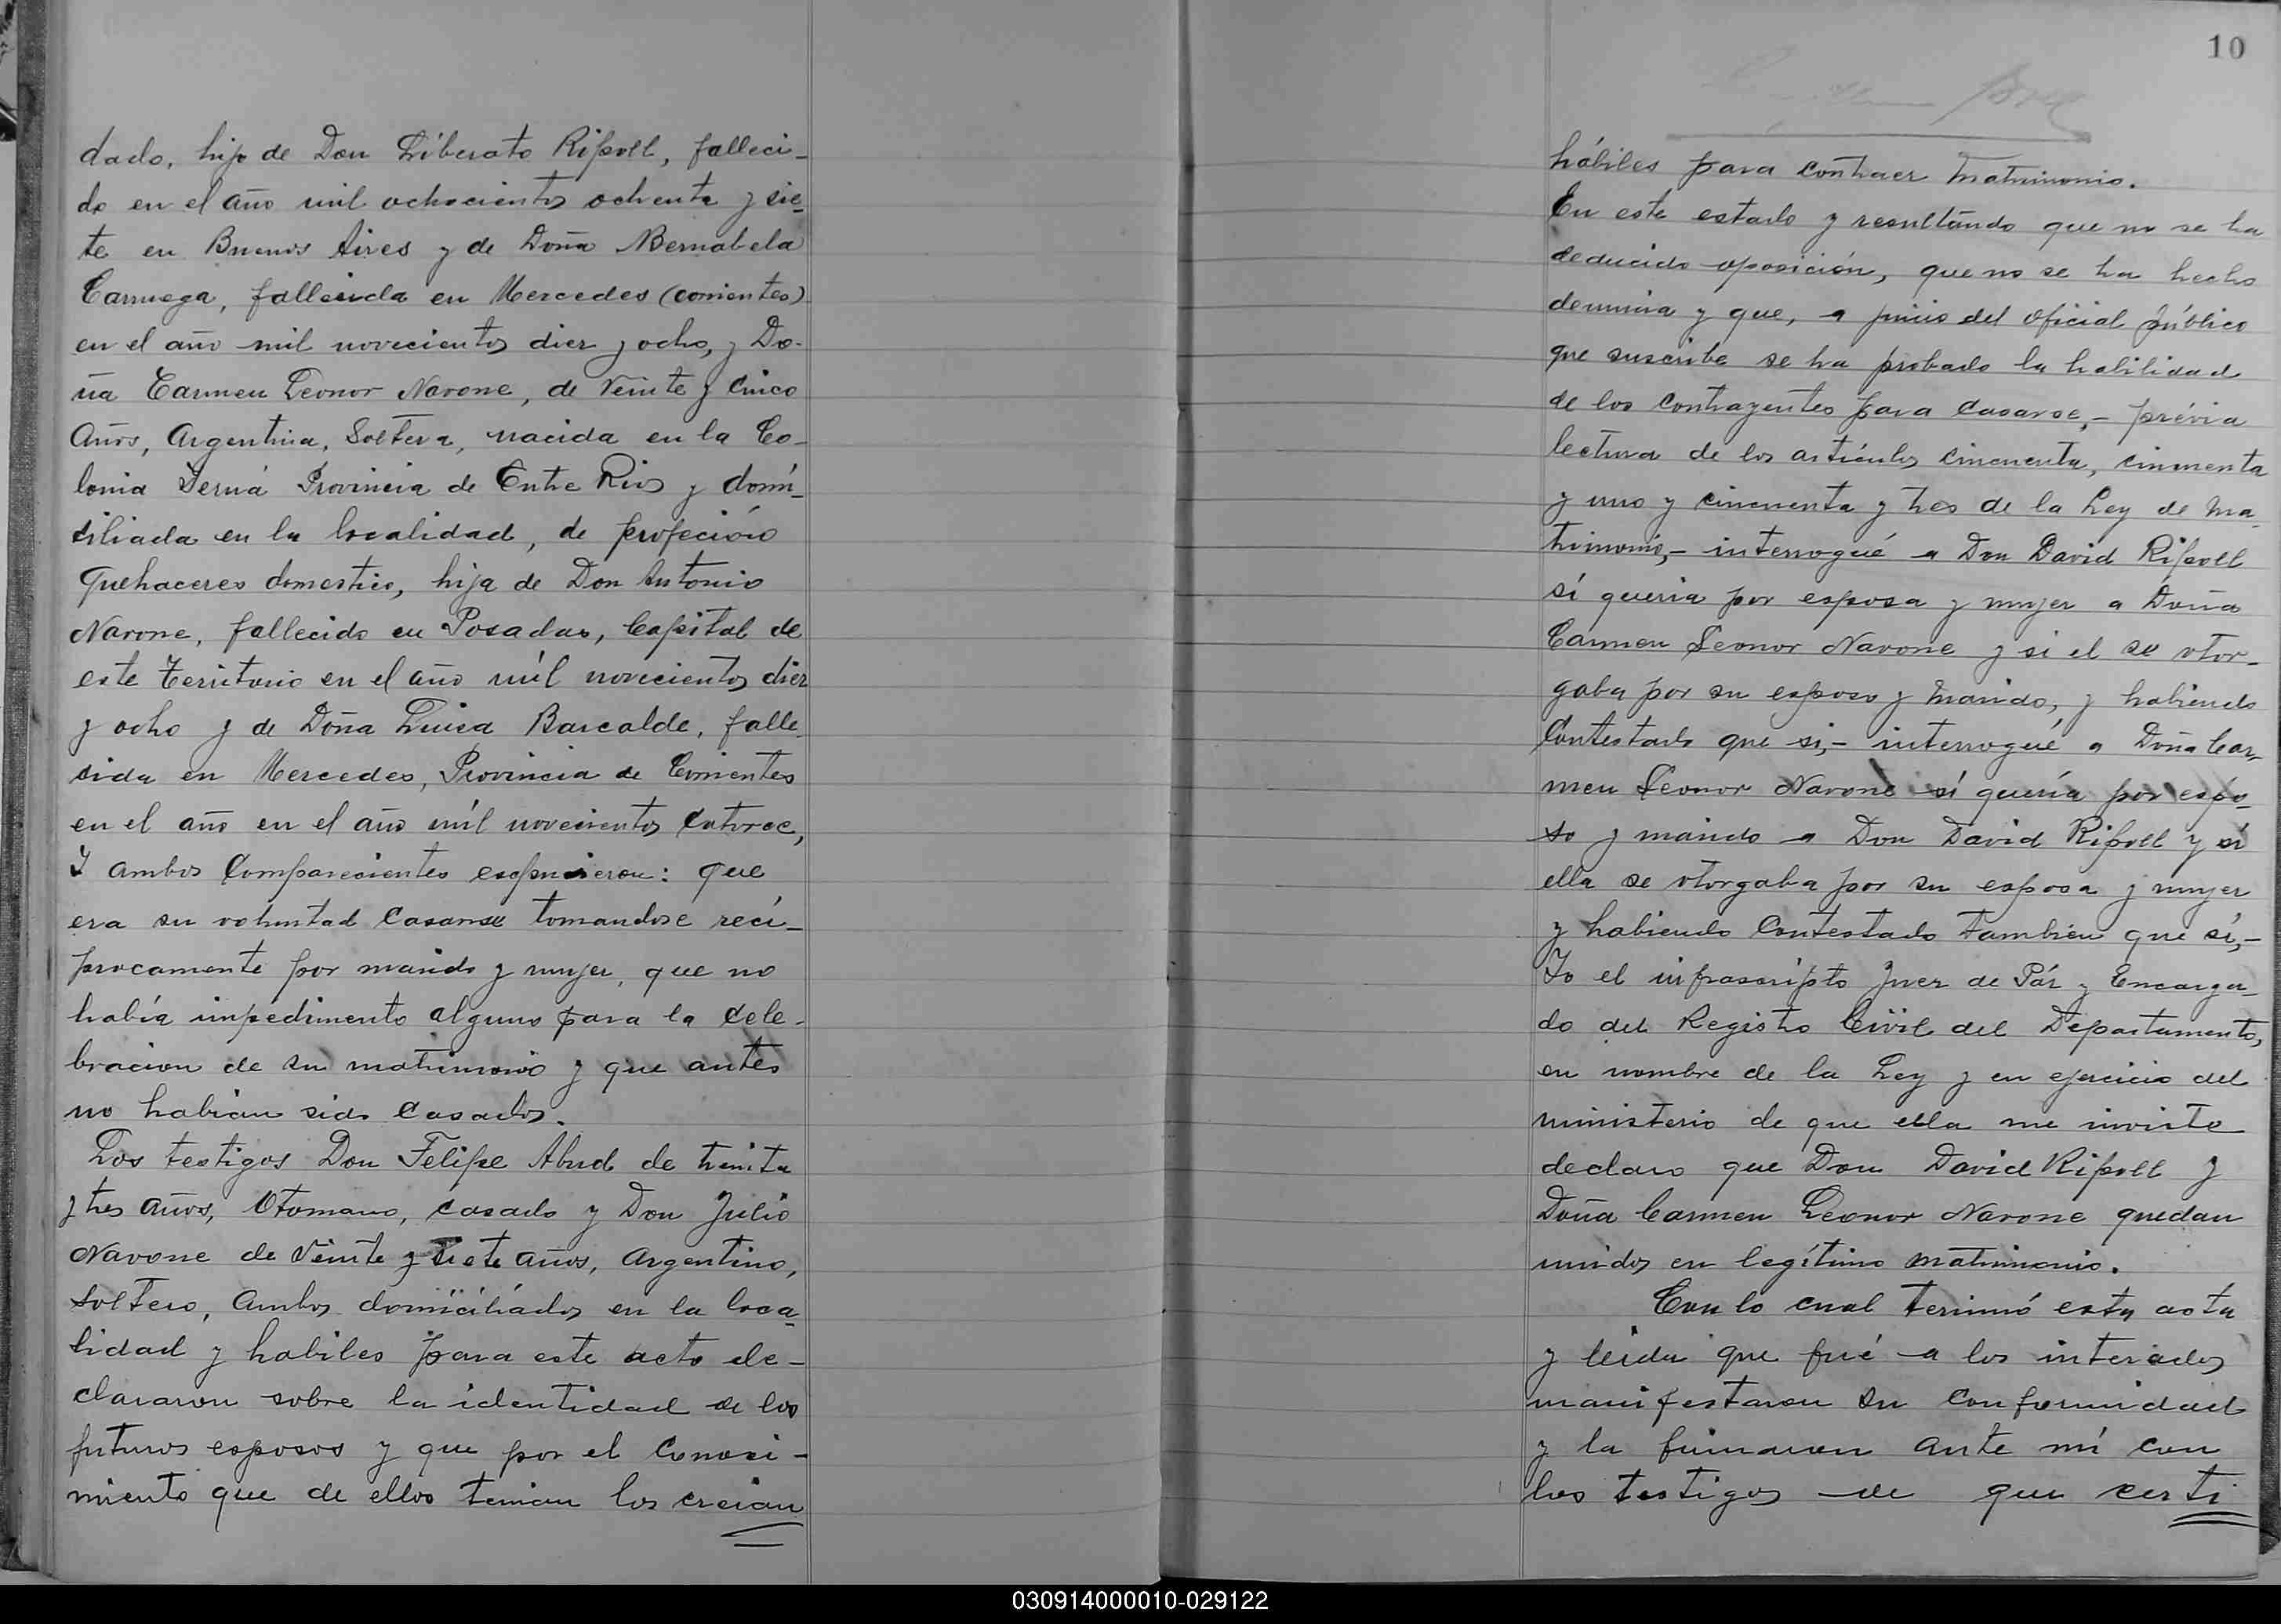 dado, hijo de Don Liberato Ripoll, falleci-
do en el año mil ochocientos ochenta y sie-
te en Buenos Aires y de Doña Bernabela
fallecida en Mercedes (corrientes)
en el año mil novecientos diez y ocho, y Do-
ña Carmen Leonor Navone, de Veinte y Cinco
Años, Argentina, Soltera, nacida en la Co-
lonia Provincia de Entre Rios y domi-
ciliada en la localidad, de profeción
Quehaceres domestico, hija de Don Antonio
Navone, fallecido en Posadas, Capital de
este Territorio en el año mil novecientos diez
y ocho y de Doña Luisa Barcalde, falle
cida en Mercedes, Provincia de Corrientes
en el año en el año mil novecientos Catorce,
Y ambos Comparecientes expusieron: que
era su voluntad Casarse tomandose recí-
procamente por marido y mujer, que no
había impedimento alguno para la Cele-
bracion de su matrimonio y que antes
no habian sido Casados.
Los testigos Don Felipe Abud de treinta
y tres años, Otomano, casado y Don Julio
Navone de Veinte y siete años, Argentino,
soltero, Ambos domiciliados en la loca-
lidad y habiles para este acto de-
clararon sobre la identidad de los
futuros esposos y que por el Conoci-
miento que de ellos tenian los creian
10
hábiles para contraer matrimonio.
En este estado y resultando que no se ha
deducido oposición, que no se ha hecho
denuncia y que, a juicio del oficial público
que suscribe se ha probado la habilidad
de los contrayentes para casarse,- prévia
lectura de los artículos cincuenta, cincuenta
y uno y cincuenta y tres de la Ley de Ma-
trimonio,- interrogué a Don David Ripoll
sí queria por esposa y mujer a Doña
Carmen Leonor Navone y si el se otor-
gaba por su esposo y marido, y habiendo
Contestado que si,- interrogué a Doña Car-
men Leonor Navone sí quería por espo-
so y marido a Don David Ripoll y sí
ella se otorgaba por su esposa y mujer
y habiendo Contestado tambien que sí,-
Yo el infrascripto Juez de Páz y Encarga-
do del Registro Civil del Departamento,
en nombre de la Ley y en ejercicio del
ministerio de que ella me inviste
declaro que Don David Ripoll y
Doña Carmen Leonor Navone quedan
unidos en legítimo matrimonio.
Con lo cual terminó esta acta
y leida que fué a los interados
manifestaron su Conformidad
y la firmaron ante mí con
los testigos de que certi
030914000010-029122